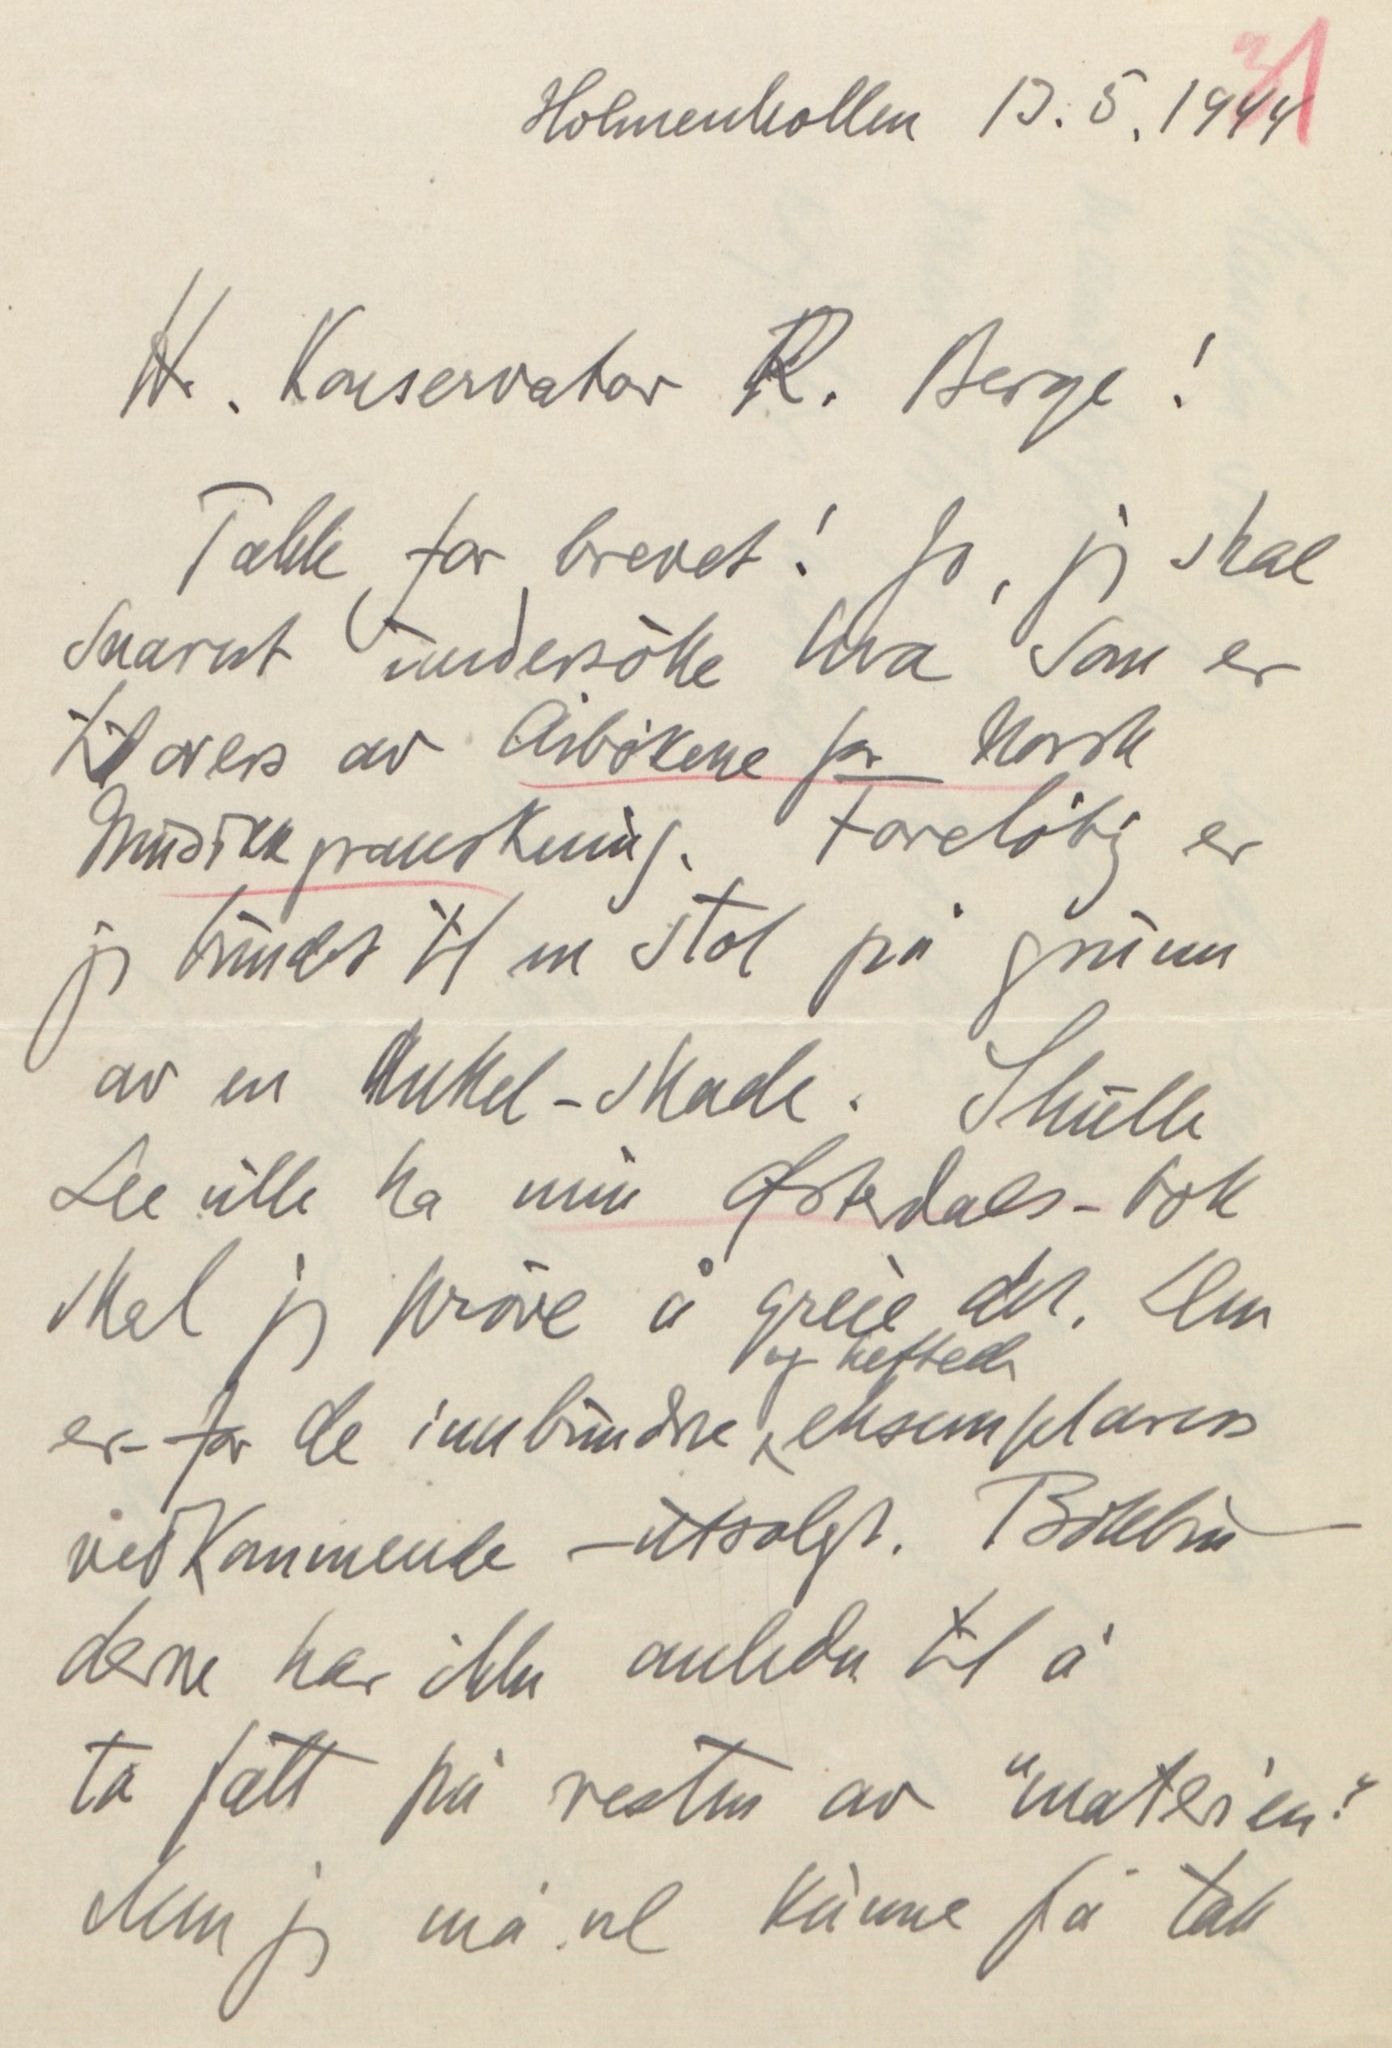 31
Holmenkollen 13.5.1944
Hr. Konservator R. Berge!
Takk for brevet! Jo, jeg skal
snarest undersöke hva som er
tilovers av Årbökene for Norsk
Musikkgranskning. Forelöbig er
jeg bundet til en stol på grunn
av en Ankel-skade. Skulle
De ville ha min Østerdals-bok
skal jeg pröve å greie det. Den
er - for de innbundne og heftede eksemplarers
vedkommende - utsolgt. Bokbin-
derne har ikke anledn til å
ta fatt på resten av "materien".
Men jeg må vel kunne få tak